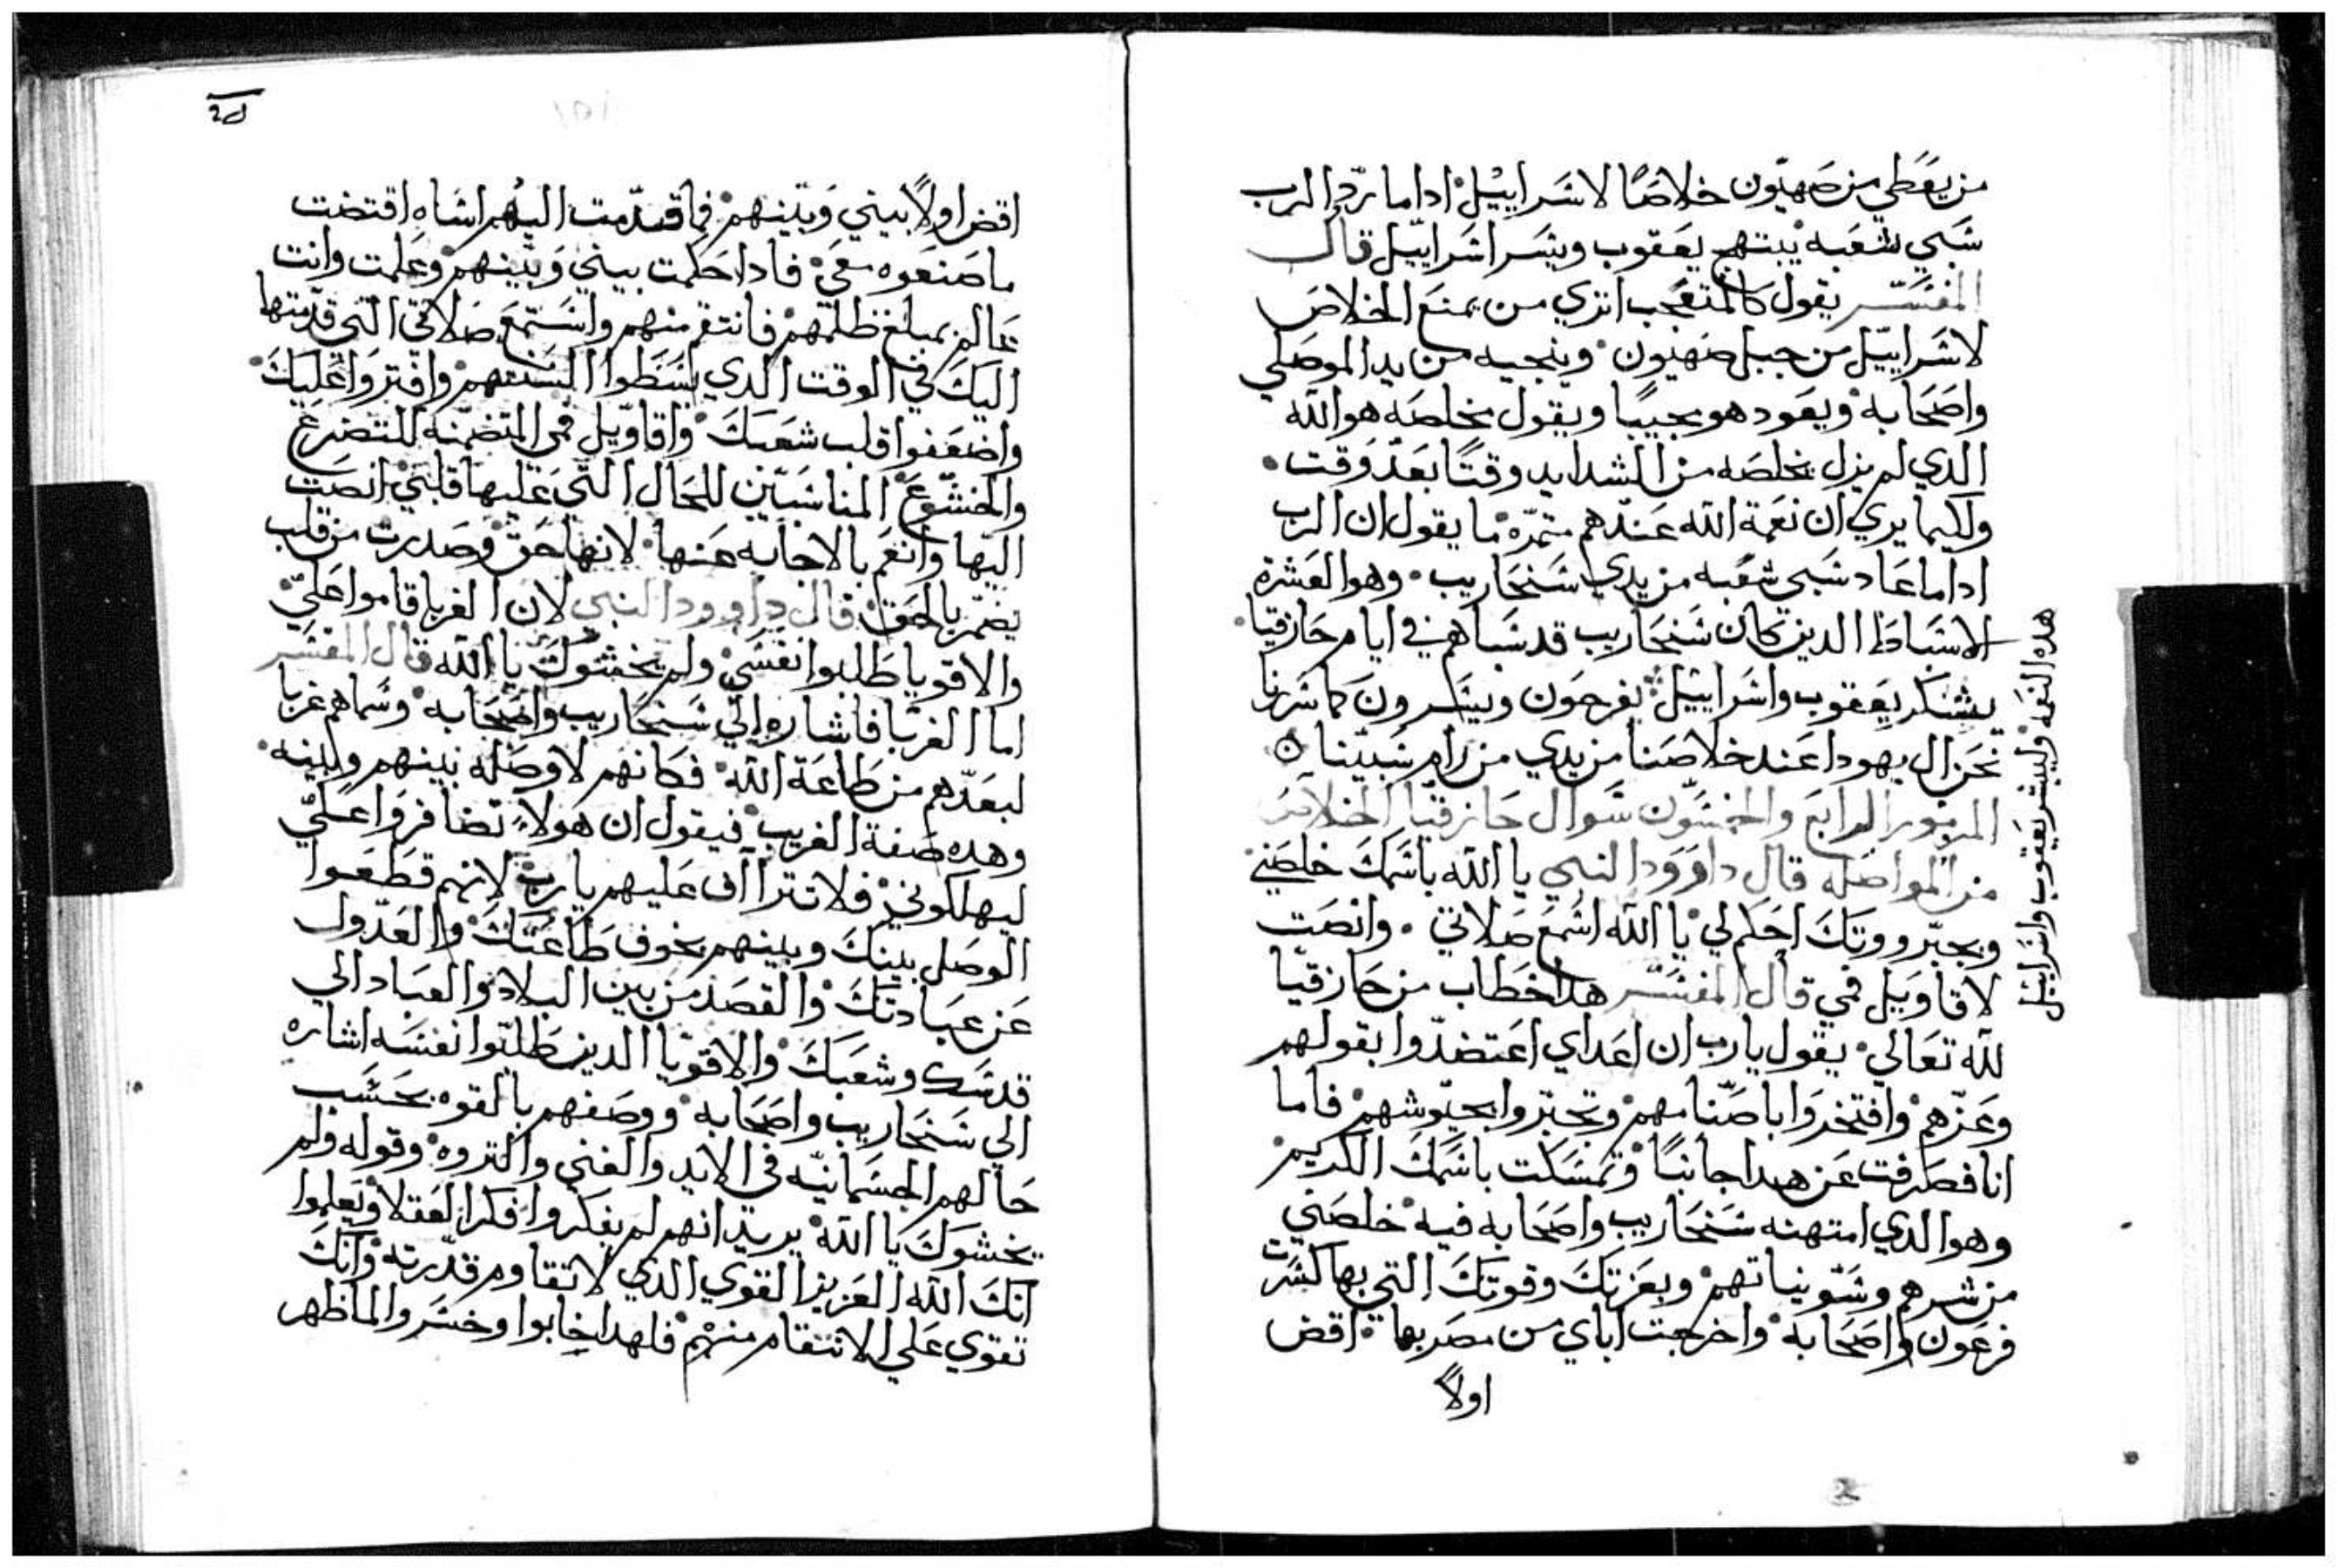 من يعطي من صهيون خلاصًا لاسراييل اداما ردّ الرب
سبي شعبه يبتهج يعقوب ويسر اسراييل قال
المفسر يقول كالمتعجب اتري من يمنع الخلاص
لاسراييل من جبل صهيون وينجيه من يد الموصلي
واصحابه ويعود هو مجيبا ويقول مخلصه هو الله
الدي لم يزل يخلصه من الشدايد وقتًا بعد وقت
ولكيما يري ان نعمة الله عندهم متمره ما يقول ان الرب
اداما عاد سبي شعبه من يدي سنحاريب وهو العشرة
الاسباط الدين كان سنحاريب قد سباهم في ايام حازقيا
يشكر يعقوب واسراييل يفرحون ويسرون كما سررنا
نحن ال يهودا عند خلاصنا من يدي من رام سبينا
المزمور الرابع والخمسون سوال حازقيا الخلاص
من المواصله قال داوود النبي يا الله باسمك خلصني
وبجبرووتك احكم لي يا الله اسمع صلاتي وانصت
لاقاويل فمي قال المفسر هدا خطاب من حازقيا
لله تعالي يقول يا رب ان اعداي اعتضدوا بقولهم
وعزهم وافتخروا باصنامهم وتجبروا بجيوشهم فاما
انا فصرفت عن هدا جانبًا وتمسكت باسمك الكريم
وهو الدي امتهنه سنحاريب واصحابه فيه خلصني
من شرهم وسو نياتهم وبعزتك وقوتك التي بها كسرت
فرعون واصحابه واخرجت اباي من مصر بها اقض
اولاً
هده النعمه وليسر يعقوب واسراييل
اقض اولاً بيني وبينهم فما قدمت اليهم اساه اقتضت
ما صنعوه معي فادا حكمت بيني وبينهم وعلمت وانت
عالم بمبلغ ظلمهم فانتقم منهم واستمع صلاتي التي قدمتها
اليك في الوقت الدي بسطوا السنتهم وافتروا عليك
واضعفوا قلب شعبك واقاويل فمي المتضمنه للتضرع
والخشوع المناسبين للحال التي عليها قلبي انصت
اليها وانعم بالاجابه عنها لانها حق وصدرت من قلب
يضمر بالحق قال داوود النبي لان الغربا قاموا علي
والاقويا طلبوا نفسي ولم يخشوك يا الله قال المفسر
اما الغربا فاشاره الي سنحاريب واصحابه وسماهم غربا
لبعدهم من طاعة الله فكانهم لا وصله بينهم وبينه
وهده صفة الغريب فيقول ان هولاء تضافروا علي
ليهلكوني فلا تتراأف عليهم يا رب لانهم قطعوا
الوصل بينك وبينهم بخوف طاعتك والعدول
عن عبادتك والقصد من بين البلاد والعباد الي
قدسك وشعبك والاقويا الدين طلبوا نفسه اشاره
الي سنحاريب واصحابه ووصفهم بالقوه بحسب
حالهم الجسمانيه في الايد والغني والتروه وقوله ولم
يخشوك يا الله يريد انهم لم يفكروا فكر العقلا ويعلموا
انك الله العزيز القوي الدي لا تقاوم قدرته وانك
تقوي علي الانتقام منهم فلهدا خابوا وخسروا لما ظهر